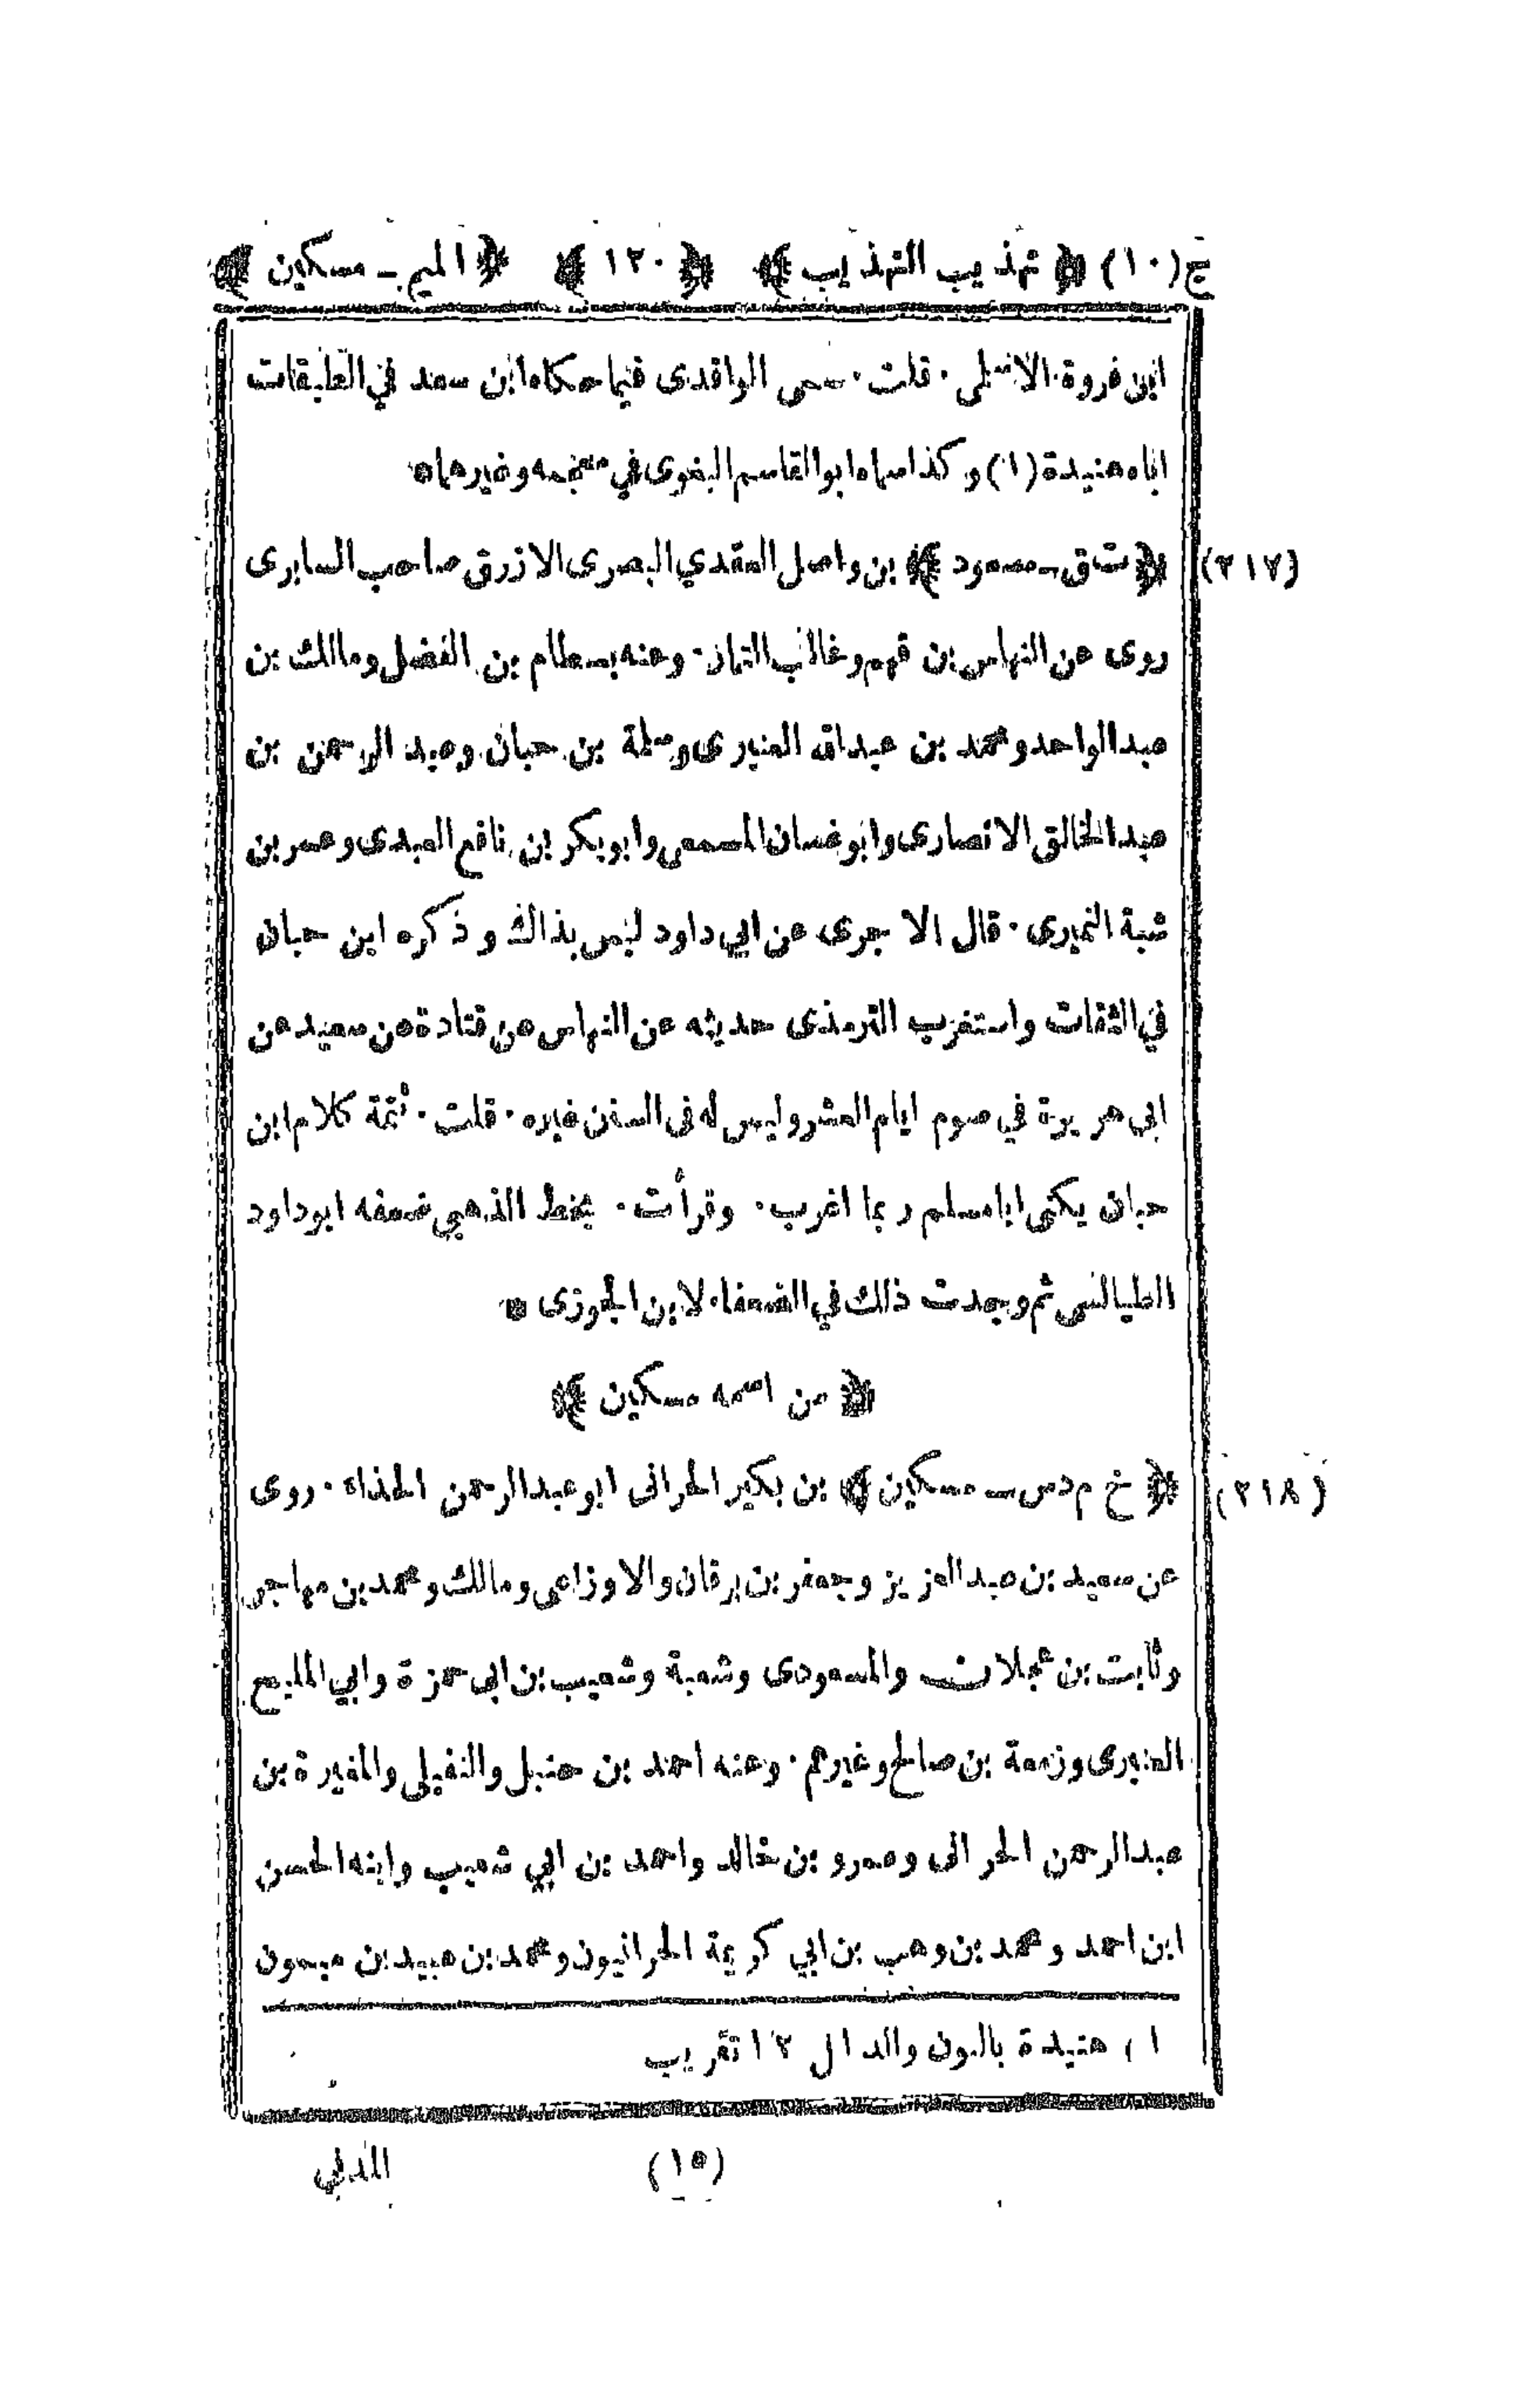 ج(١٠) ﴿ تهذيب التهذيب ﴾ ﴿ ١٢٠ ﴾ ﴿ الميم ـ مسكين ﴾
ابن فروة الاسلمى · قلت · سمى الواقدى فيما حكاه ابن سعد في الطبقات
اباه هنيدة (١) وكذا سماه ابو القاسم البغوى في معجمه وغيرهما *
(٢١٧) ﴿ ت ق ـ مسعود ﴾ بن واصل العقدي البصرى الازرق صاحب السابرى
روى عن النهاس بن قهم وغالب التمار · وعنه بسطام بن الفضل ومالك بن
عبد الواحد ومحمد بن عبدالله العنبرى وسلمة بن حبان وعبد الرحمن بن
عبد الخالق الانصارى وابوغسان المسمعى وابوبكر بن نافع العبدى وعمر بن
شبة النميرى · قال الاجرى عن ابي داود ليس بذاك وذكره ابن حبان
في الثقات واستغرب الترمذى حديثه عن النهاس عن قتادة عن سعيد عن
ابي هريرة في صوم ايام العشر وليس له فى السنن غيره · قلت · تتمة كلام ابن
حبان يكنى ابا مسلم ربما اغرب · وقرأت · بخط الذهبي ضعفه ابو داود
الطيالسى ثم وجدت ذلك في الضعفاء لابن الجوزى *
﴿ من اسمه مسكين ﴾
(٢١٨) ﴿ خ م د س ـ مسكين ﴾ بن بكير الحرانى ابو عبد الرحمن الحذاء · روى
عن سعيد بن عبد العزيز وجعفر بن برقان والاوزاعى ومالك ومحمد بن مهاجر
وثابت بن عجلان والمسعودى وشعبة وشعيب بن ابى حمزة وابي المليح
العنبرى وزمعة بن صالح وغيرهم · وعنه احمد بن حنبل والنفيلي والمغيرة بن
عبد الرحمن الحرانى وعمرو بن خالد واحمد بن ابي شعيب وابنه الحسن
ابن احمد ومحمد بن وهب بن ابي كريمة الحرانيون ومحمد بن عبيد بن ميمون
١) هنيدة بالنون والدال ١٢ تقريب
(١٥) المدني